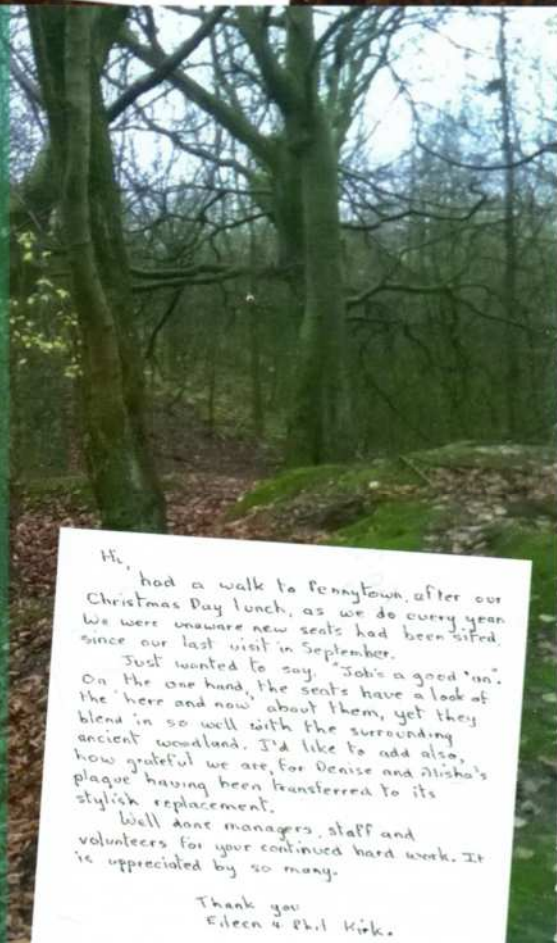 Hi,
had a walk to Pennytown, after our
Christmas Day lunch, as we do every year
We were unaware new seats had been sited,
since our last visit in September.
Just wanted to say, "Job's a good 'un".
On the one hand, the seats have a look of
the 'here and now' about them, yet they
blend in so well with the surrounding
ancient woodland. I'd like to add also,
how grateful we are, for Denise and Alisha's
plaque having been transferred to its
stylish replacement.
Well done managers, staff and
volunteers for your continued hard work. It
is appreciated by so many.
Thank you
Eileen & Phil Kirk.